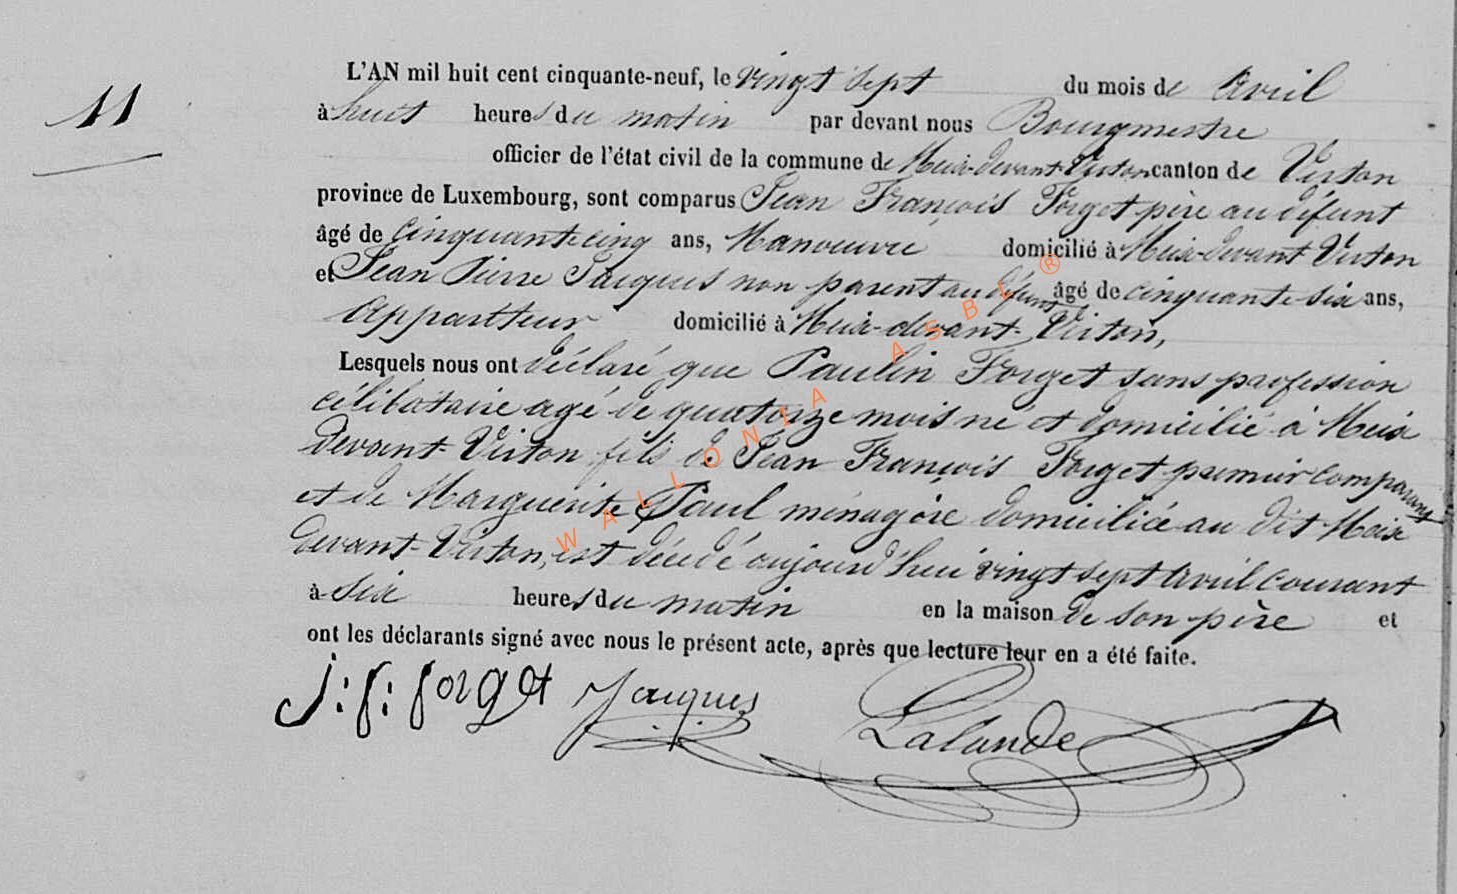 11
L'AN mil huit cent cinquante-neuf, le vingt sept du mois de Avril
à huit heures du matin par devant nous Bourgmestre
officier de l'état civil de la commune de Meix-devant-Virton canton de Virton
province de Luxembourg, sont comparus Jean François Forget père au défunt
âgé de cinquante cinq ans, Manoeuvre domicilié à Meix-devant Virton
et Jean Pierre Jacques non parent au défunt âgé de cinquante-six ans,
appariteur domicilié à Meix-devant-Virton,
Lesquels nous ont déclaré que Paulin Forget sans profession
célibataire agé de quatorze mois né et domicilié à Meix
devant-Virton fils de Jean François Forget premier comparant
et de Marguerite Paul ménagère domiciliée au dit Meix
devant-Virton, est décédé aujourd'hui vingt sept avril courant
à six heures du matin en la maison de son père et
ont les déclarants signé avec nous le présent acte, après que lecture leur en a été faite.
j: f: forget Jacques Lalande
WALLONIA ASBL ®